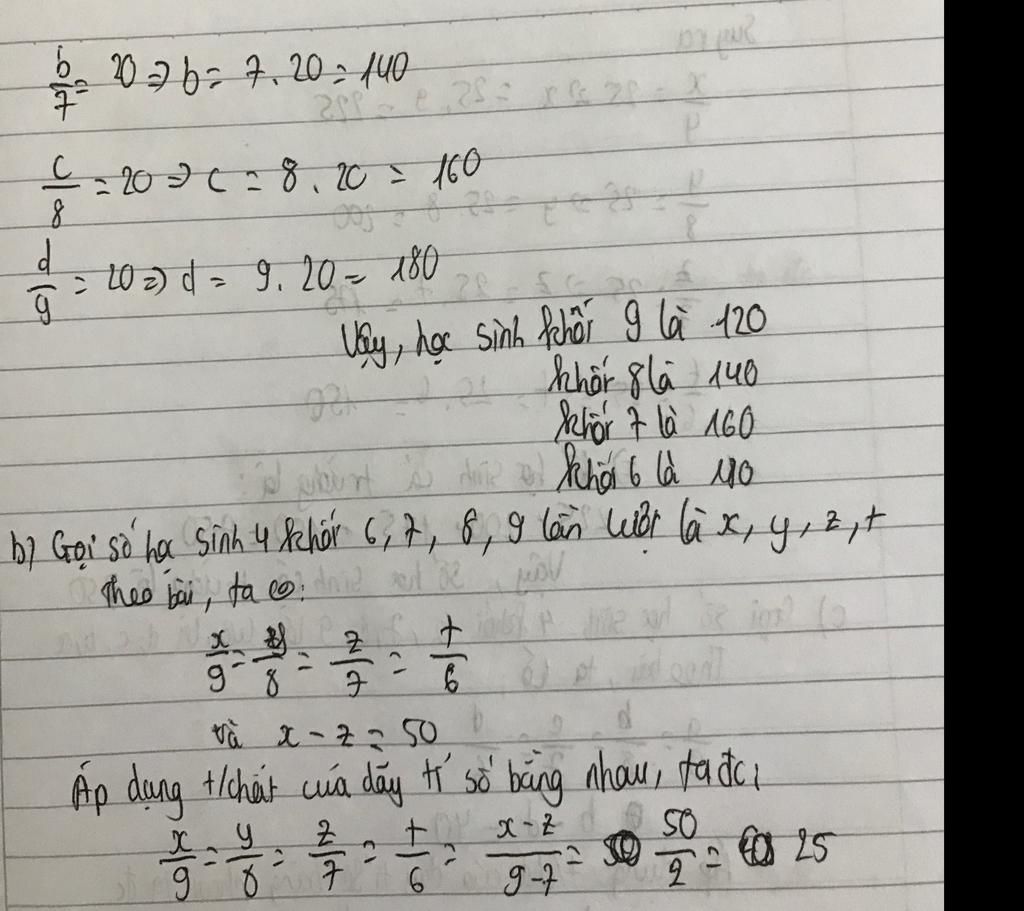 b/7 = 20 => b = 7 . 20 = 140
c/8 = 20 => c = 8 . 20 = 160
d/9 = 20 => d = 9 . 20 = 180
Vậy, học sinh khối 9 là 120
khối 8 là 140
khối 7 là 160
khối 6 là
b) Gọi số học sinh 4 khối 6, 7, 8, 9 lần lượt là x, y, z, t
Theo bài, ta có:
x/9 = y/8 = z/7 = t/6
và x - z = 50
Áp dụng t/chất của dãy tỉ số bằng nhau, ta đc:
x/9 = y/8 = z/7 = t/6 = x-z/9-7 = 50/2 = 25